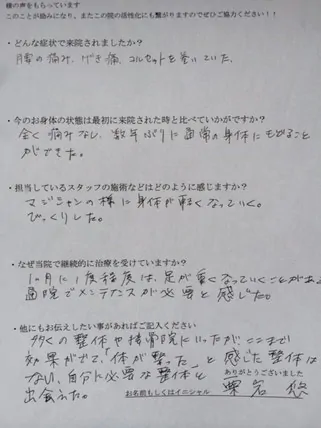 様の声をもらっています
このことが励みになり、またこの院の活性化にも繋がりますのでぜひご協力ください！！
・どんな症状で来院されましたか？
腰の痛み、げき痛、コルセットを巻いていた。
・今のお身体の状態は最初に来院された時と比べていかがですか？
全く痛みなし、数年ぶりに通常の身体にもどること
ができた。
・担当しているスタッフの施術などはどのように感じますか？
マジシャンの様に身体が軽くなっていく。
びっくりした。
・なぜ当院で継続的に治療を受けていますか？
1ヶ月に1度程度は、足が重くなっていくことがあり
当院でメンテナンスが必要と感じた。
・他にもお伝えしたい事があればご記入ください
多くの整体や接骨院にいったがここまで
効果がでて「体が整った」と感じた整体は
ない、自分に必要な整体と
ありがとうございました
出会えた。
お名前もしくはイニシャル